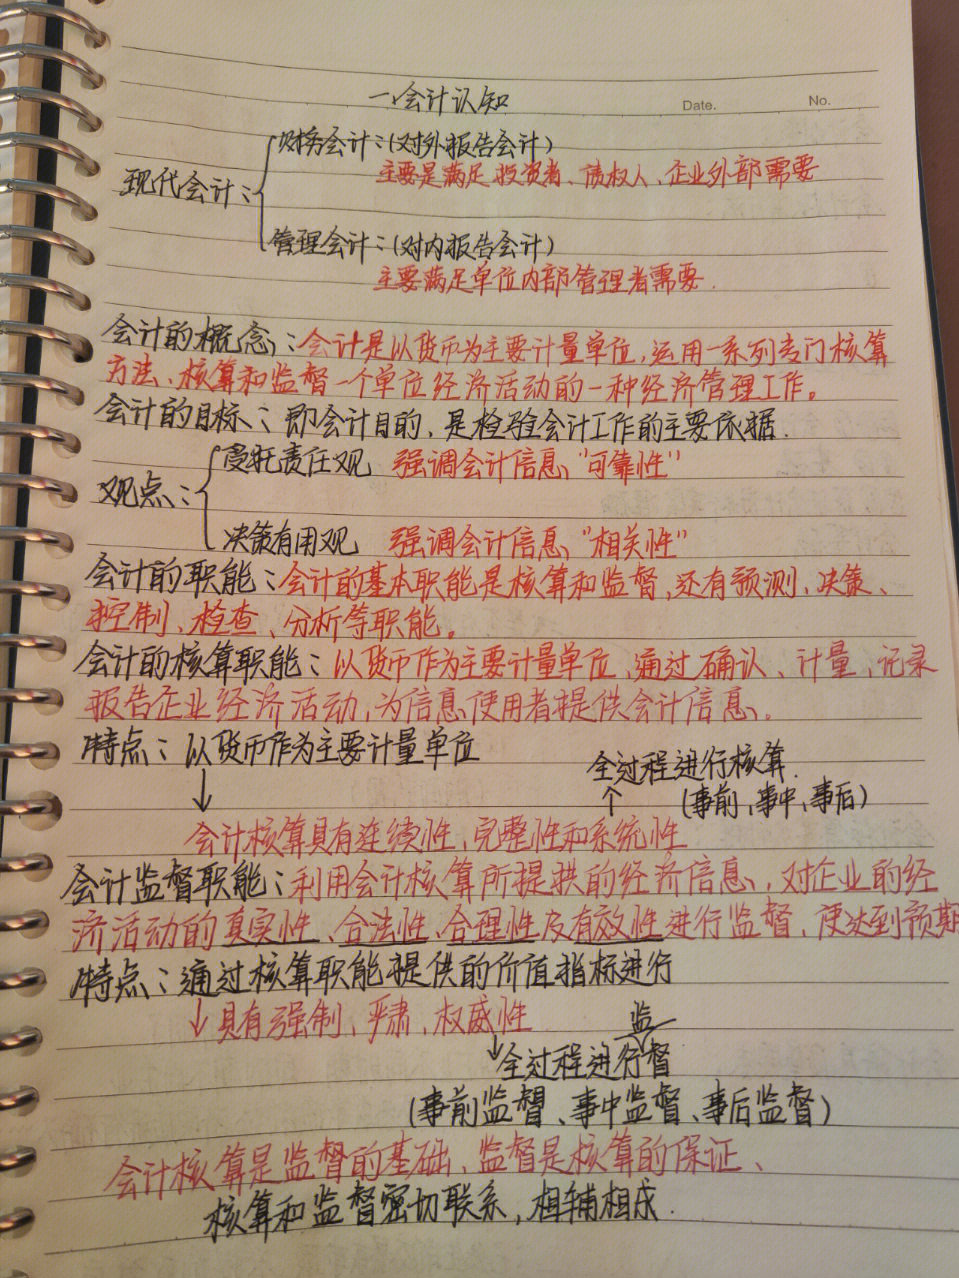 一、会计认知
Date. No.
财务会计：(对外报告会计)
主要是满足投资者、债权人、企业外部需要
现代会计：
管理会计：(对内报告会计)
主要满足单位内部管理者需要.
会计的概念：会计是以货币为主要计量单位,运用一系列专门核算
方法、核算和监督一个单位经济活动的一种经济管理工作。
会计的目标：即会计目的、是检验会计工作的主要依据.
受托责任观 强调会计信息“可靠性”
观点：
决策有用观 强调会计信息“相关性”
会计的职能：会计的基本职能是核算和监督,还有预测、决策、
控制、检查、分析等职能。
会计的核算职能：以货币作为主要计量单位,通过确认、计量,记录
报告企业经济活动,为信息使用者提供会计信息。
特点：以货币作为主要计量单位
全过程进行核算.
↓ ↑ (事前、事中、事后)
会计核算具有连续性,完整性和系统性
会计监督职能：利用会计核算所提拱的经济信息,对企业的经
济活动的真实性、合法性、合理性及有效性进行监督、使达到预期
特点：通过核算职能提供的价值指标进行
↓具有强制、严肃、权威性
监
↓全过程进行督
(事前监督、事中监督、事后监督)
会计核算是监督的基础、监督是核算的保证、
核算和监督密切联系,相辅相成.